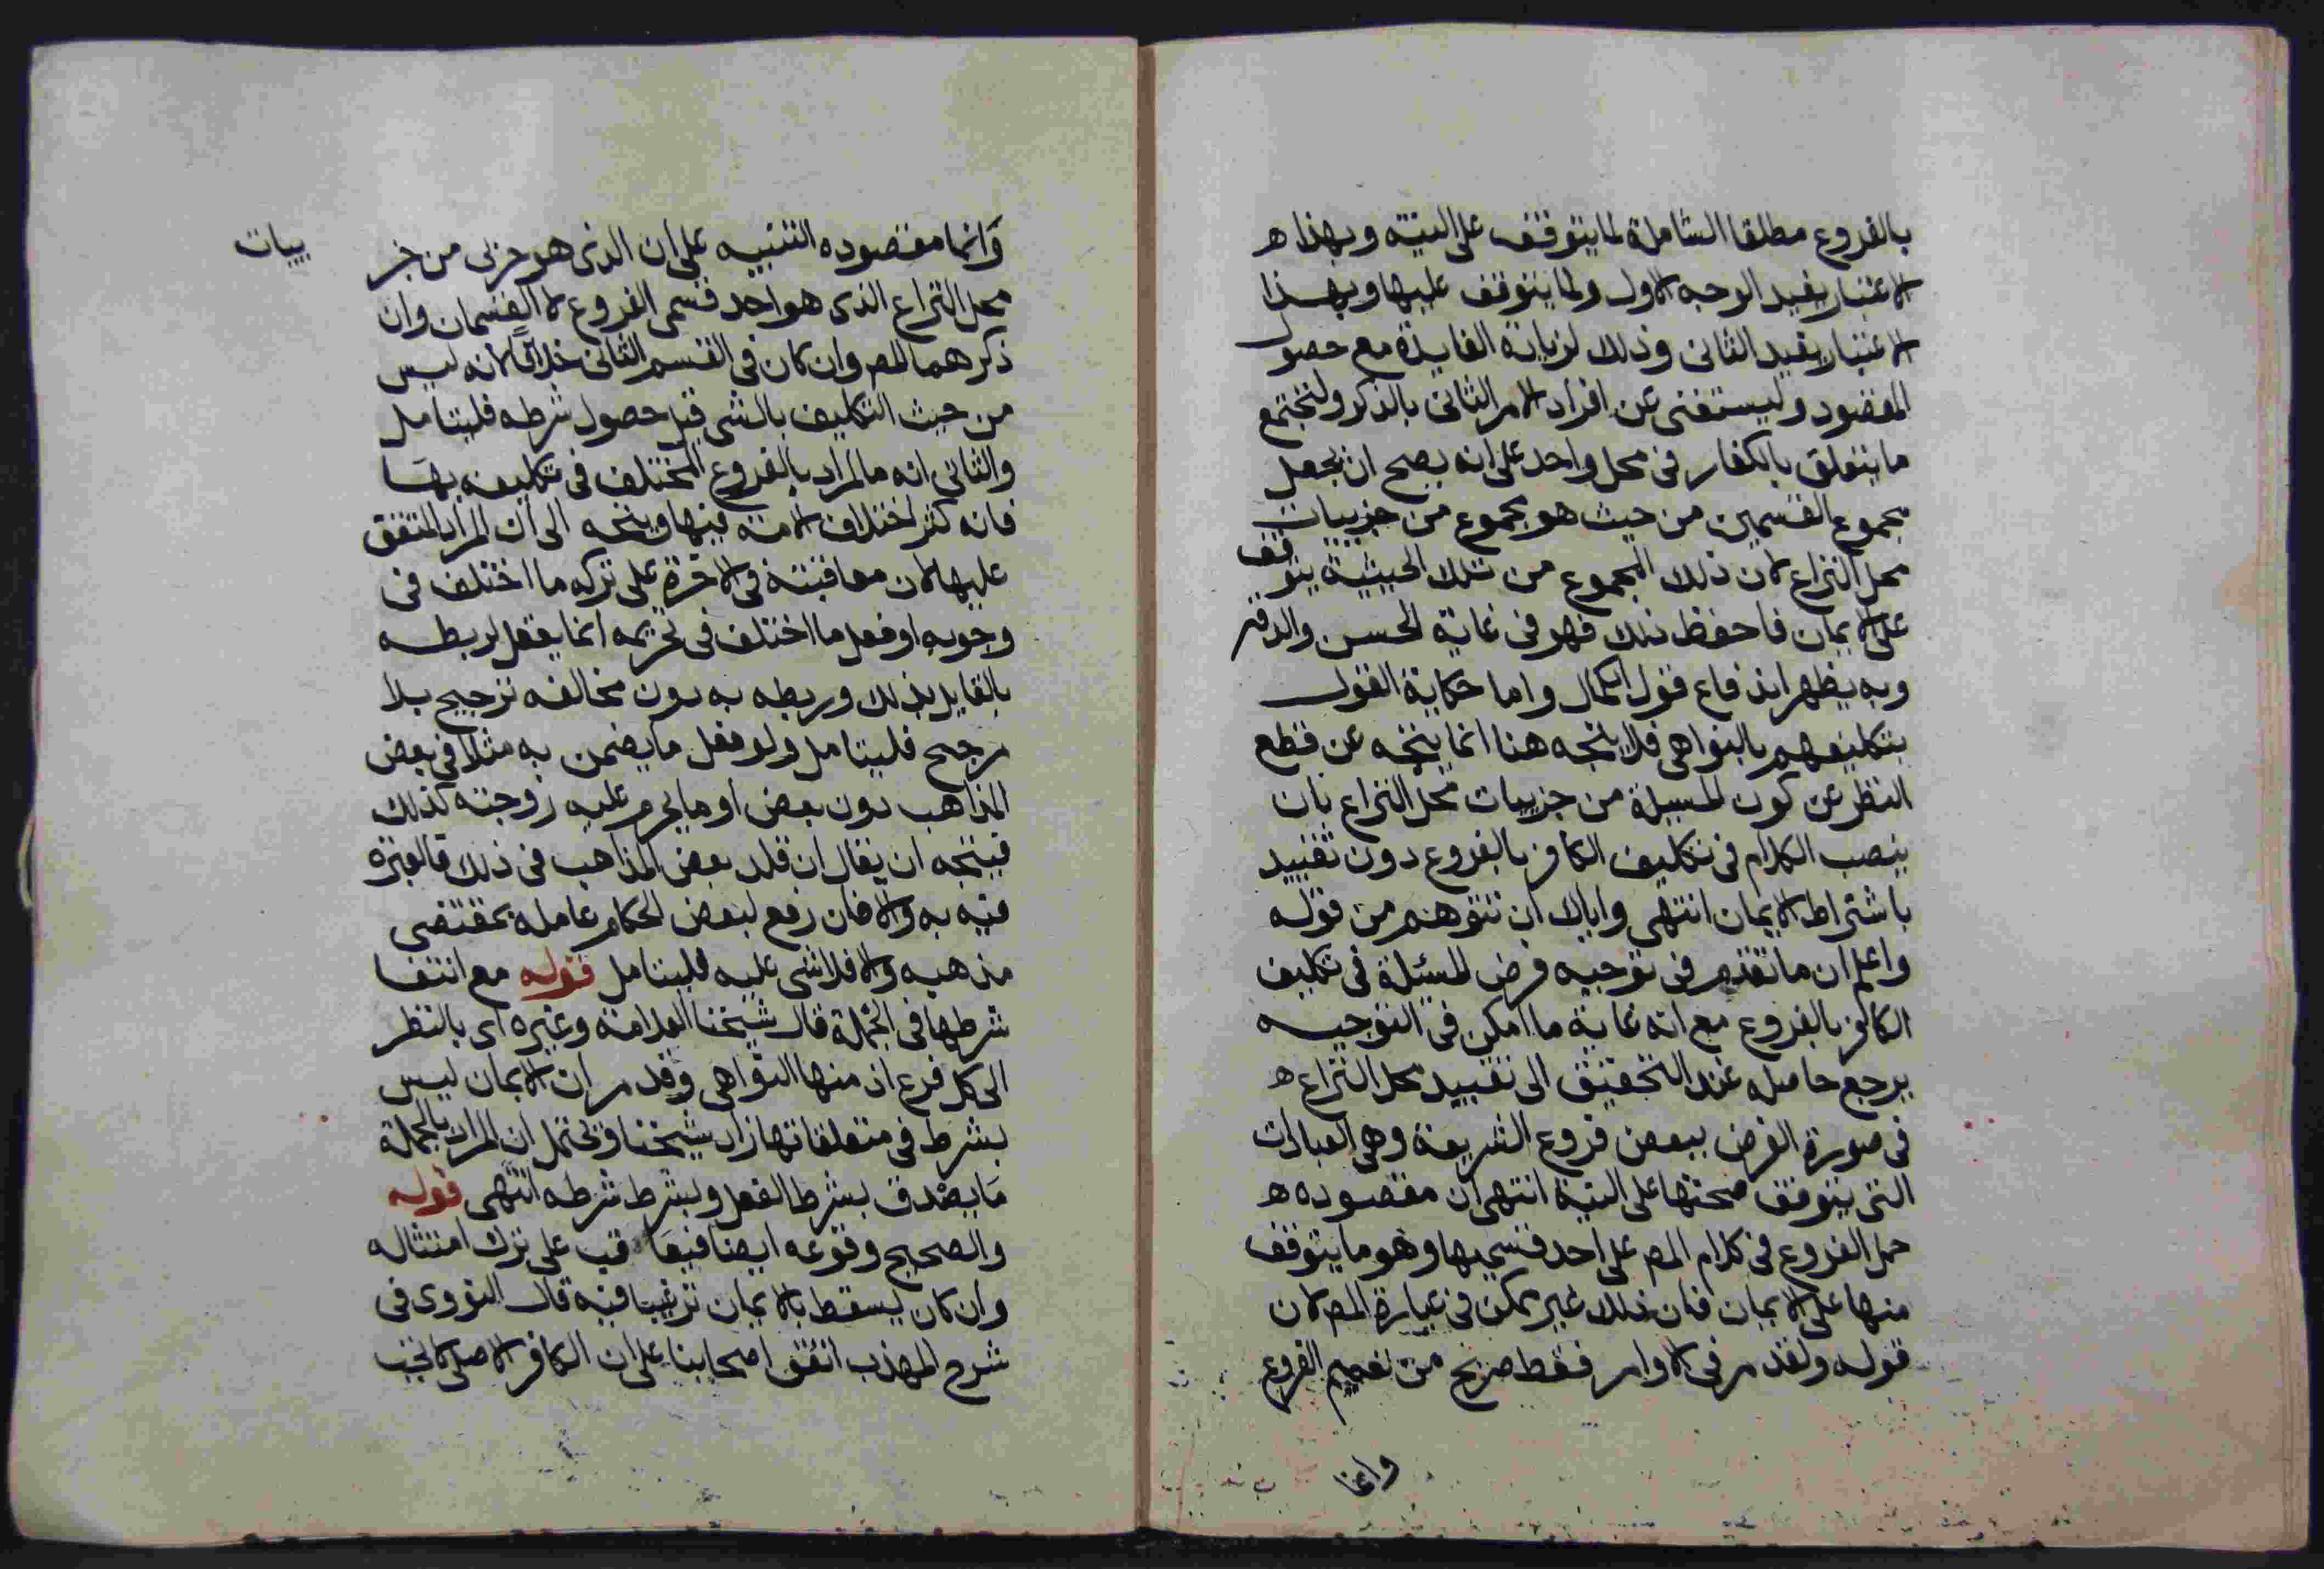 بالفروع مطلقا الشاملة لما يتوقف على النية وبهذا ه
الاعتبار يفيد الوجه الاول ولما يتوقف عليها وبهذا
الاعتبار يفيد الثانى وذلك لزيادة الفايدة مع حصول
المقصود وليستغنى عن افراد الامر الثانى بالذكر ولتجتمع
ما يتعلق بالكفار فى محل واحد على انه يصح ان يجعل
مجموع القسمين من حيث هو مجموع من جزييات
محل النزاع لان ذلك المجموع من تلك الحيثية يتوقف
على الايمان فاحفظ ذلك فهو فى غاية الحسن والدقة
وبه يظهر اندفاع قول الكمال واما حكاية القول
بتكليفهم بالنواهى فلا يتجه هنا انما يتجه عن قطع
النظر عن كون المسيلة من جزييات محل النزاع بان
ينصب الكلام فى تكليف الكافر بالفروع دون تقييد
باشتراط الايمان انتهى واياك ان تتوهم من قوله
واعلم ان ما تقدم فى توجيه فرض المسئلة فى تكليف
الكافر بالفروع مع انه غاية ما امكن فى التوجيه
يرجع حاصله عند التحقيق الى تقييد محل النزاع ه
فى صورة الفرض ببعض فروع الشريعة وهى العبادات
التى يتوقف صحتها على النية انتهى ان مقصوده ه
حمل الفروع فى كلام المص على احد قسميها وهو ما يتوقف
منها على الايمان فان ذلك غير ممكن فى عبارة المص لان
قوله ولقد مر فى الاوامر فقط صريح من تعميم الفروع
وانما
وانما مقصوده التنبيه على ان الذى هو جزيى من جز
ييات
محل النزاع الذى هو احد قسمى الفروع لا القسمان وان
ذكرهما المص وان كان فى القسم الثانى خلاف لانه ليس
من حيث التكليف بالشى قبل حصول شرطه فليتامل
والثانى انه ما المراد بالفروع المختلف فى تكليفه بها
فانه كثر اختلاف الامة فيها ويتجه الى ان المراد المتفق
عليها لان معاقبته فى الاخرة على تركه ما اختلف فى
وجوبه او فعل ما اختلف فى تحريمه انما يعقل لربطه
بالقايل بذلك وربطه به دون مخالفه ترجيح بلا
مرجح فليتامل ولو فعل ما يضمن به مثلا فى بعض
المذاهب دون بعض او ما يحرم عليه زوجته كذلك
فيتجه ان يقال ان قلد بعض المذاهب فى ذلك فالعبرة
فيه به والا فان رفع لبعض الحكام عامله بمقتضى
مذهبه والا فلا شى عليه فليتامل قوله مع انتفا
شرطها فى الجملة قال شيخنا العلامة وغيره اى بالنظر
الى كل فرع اذ منها النواهى وقد مر ان الايمان ليس
بشرط فى متعلقاتها زاد شيخنا ويحتمل ان المراد بالجملة
ما يصدق بشرط الفعل وبشرط شرطه انتهى قوله
والصحيح وقوعه ايضا فيعاقب على ترك امتثاله
وان كان يسقط بالايمان ترغيبا فيه قال النووى فى
شرح المهذب اتفق اصحابنا على ان الكافر الاصلى لا تجب